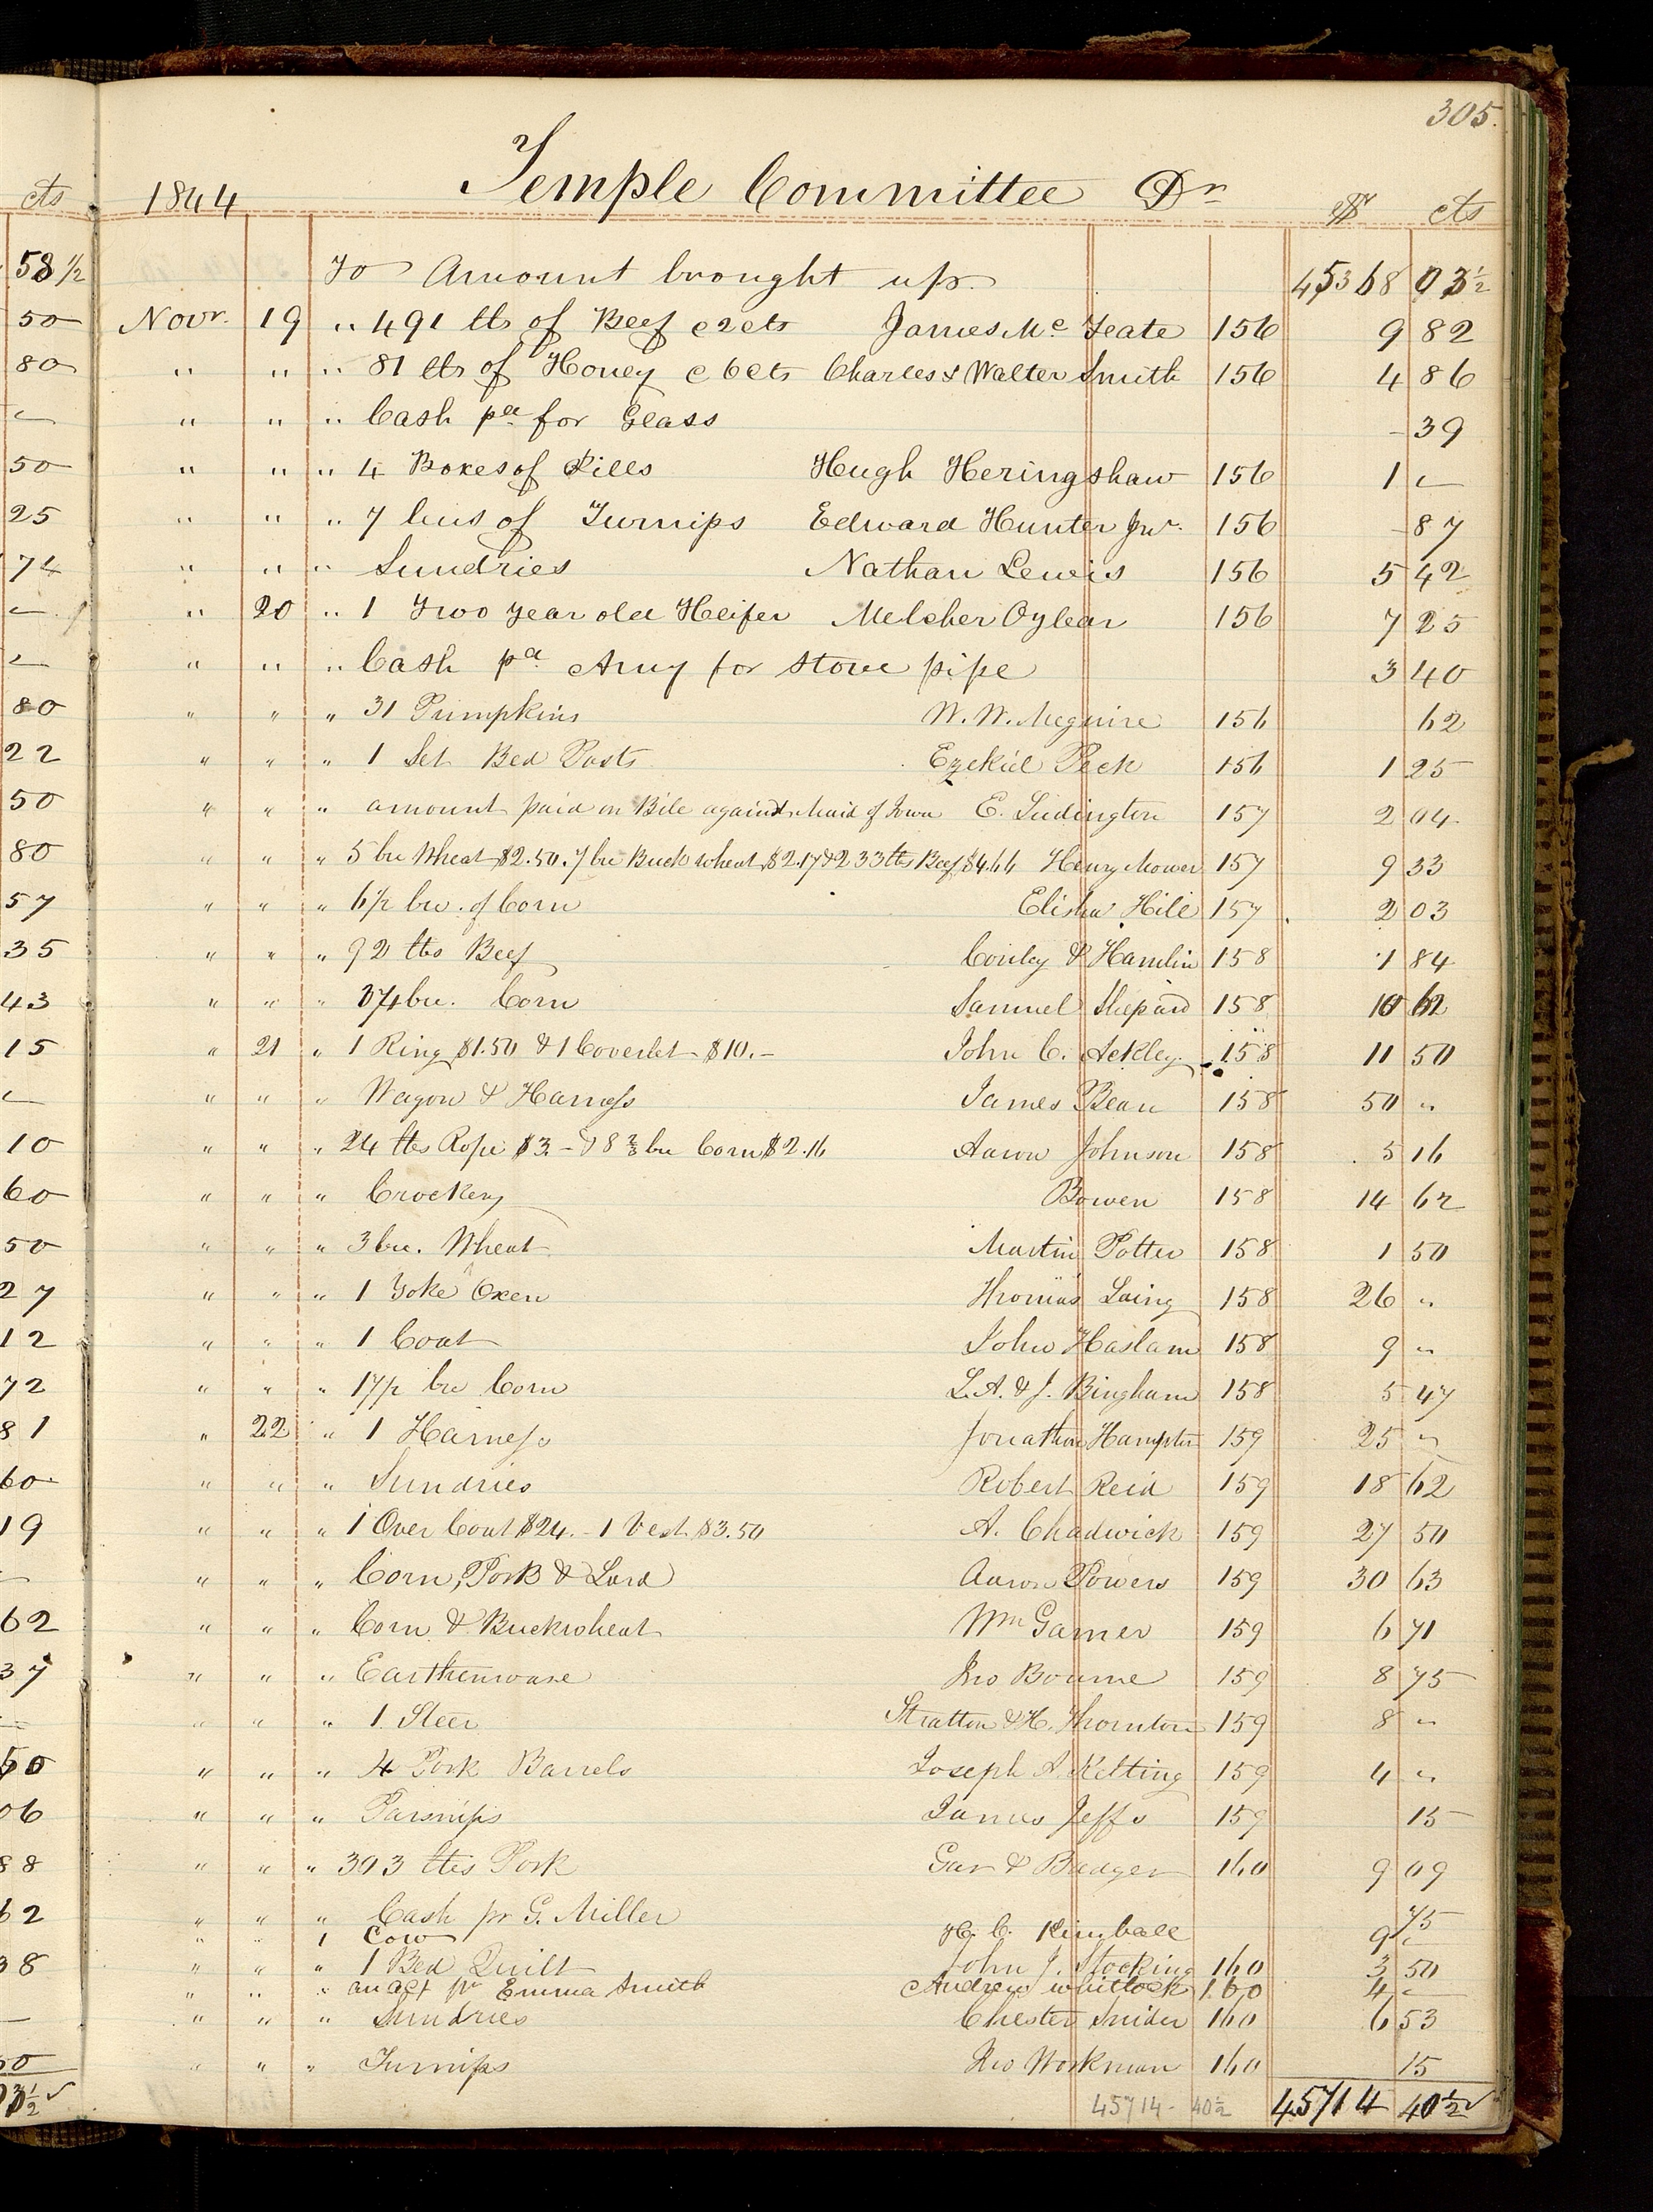 305.
cts
1844 Temple Committee Dr $ cts
58 ½ To Amount brought up 45368 03½
50 Novr. 19 " 491 lbs of Beef @ 2cts James Mc Teate 156 9 82
80 " " " 81 lbs of Honey @ 6cts Charles & Walter Smith 156 4 86
" " " Cash pd for Glass - 39
50 " " " 4 Boxes of Pills Hugh Heringshaw 156 1 -
25 " " " 7 bus of Turnips Edward Hunter Jnr. 156 - 87
74 " " " Sundries Nathan Lewis 156 5 42
" 20 " 1 Two year old Heifer Melcher Oylear 156 7 25
" " " Cash pd Amy for stove pipe 3 40
80 " " " 31 Pumpkins W. W. Meguire 156 62
22 " " " 1 Set Bed Posts Ezekiel Peck 156 1 25
50 " " " amount paid on Bill against Maid of Iowa E. Ludington 157 2 04
80 " " " 5 bu Wheat $2.50. 7 bu Buckwheat $2.17 & 233 lbs Beef $4.66 Henry Mower 157 9 33
57 " " " 6½ bu. of Corn Elisha Hill 157 2 03
35 " " " 92 lbs Beef Conley & Hamlin 158 1 84
43 " " " bu. Corn Samuel Shepard 158 10 62
15 " 21 " 1 Ring $1.50 & 1 Coverlet $10.- John C. Ackley 158 11 50
" " " Wagon & Harness James Bean 158 50 "
10 " " " 24 lbs Rope $3.- & 8 ⅔ bu Corn $2.16 Aaron Johnson 158 5 16
60 " " " Crockery Bowen 158 14 62
50 " " " 3 bu. Wheat Martin Potter 158 1 50
27 " " " 1 Yoke Oxen Thomas Laing 158 26 "
12 " " " 1 Coat John Haslam 158 9 "
72 " " " 17½ bu Corn L. A. & J. Bingham 158 5 47
81 " 22 " 1 Harness Jonathan Hampton 159 25 "
60 " " " Sundries Robert Reid 159 18 62
19 " " " 1 Over Coat $24.- 1 Vest $3.50 A. Chadwick 159 27 50
" " " Corn, Pork & Lard Aaron Powers 159 30 63
62 " " " Corn & Buckwheat Wm Garner 159 6 71
37 " " " Earthenware Jno Bourne 159 8 75
" " " 1 Steer Stratton & H. Thornton 159 8 "
50 " " " 4 Pork Barrels Joseph A. Kelting 159 4 "
06 " " " Parsnips James Jeffs 159 15
88 " " " 303 lbs Pork Gar & Badger 160 9 09
62 " " " Cash pr G. Miller 75
" " 1 Cow H. C. Kimball 9 -
38 " " " 1 Bed Quilt John J. Stocking 160 3 50
" " " an act pr Emma Smith Andrew Whitlock 160 4 -
" " " Sundries Chester Snider 160 6 53
50 " " " Turnips Jno Workman 160 15
03½ ✓ 45714 - 40½ 45714 40½ ✓